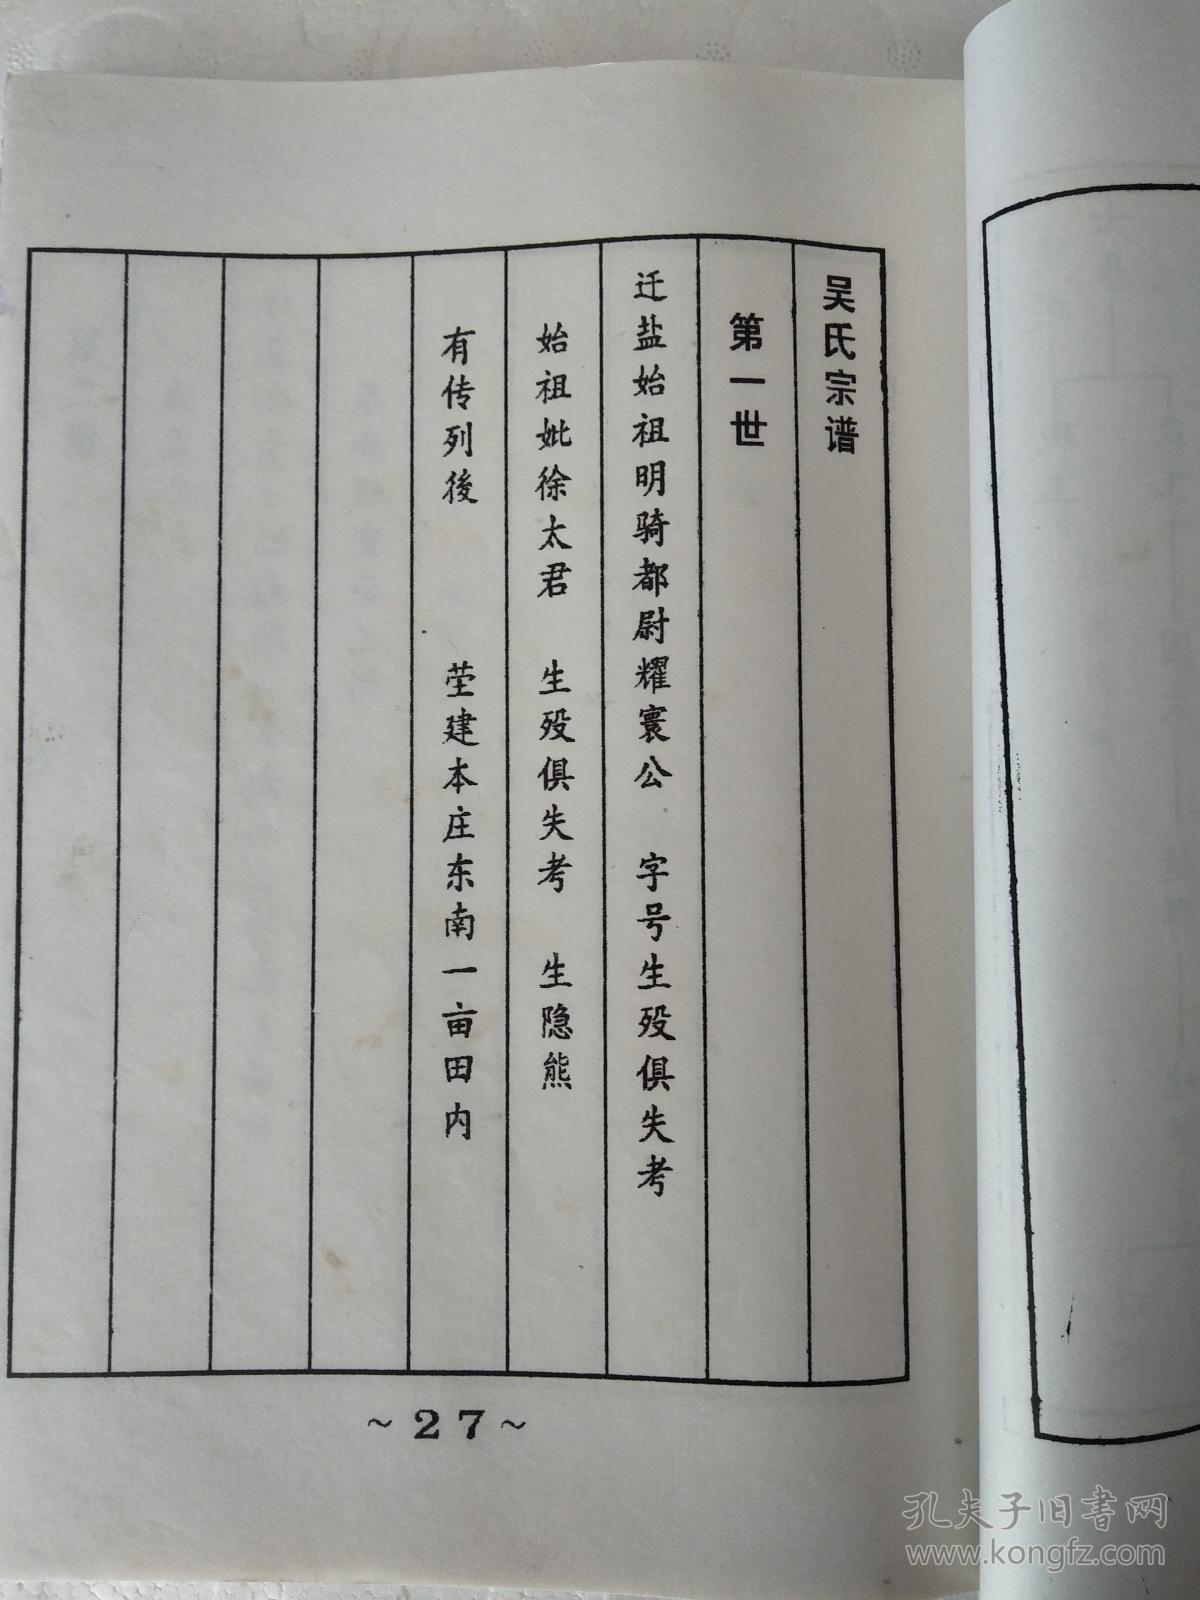 吴氏宗谱
第一世
迁盐始祖明骑都尉耀寰公 字号生殁俱失考
始祖妣徐太君 生殁俱失考 生隐熊
有传列後 茔建本庄东南一亩田内
~27~
孔夫子旧书网
www.kongfz.com